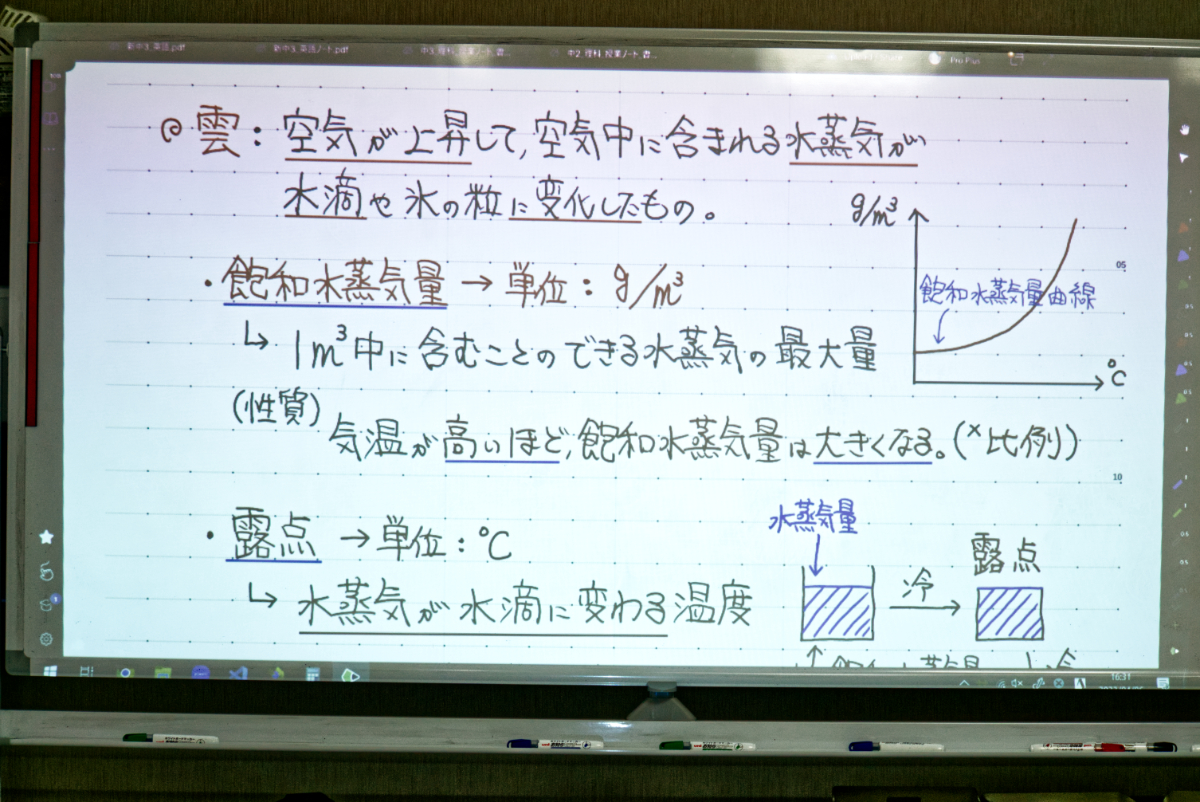 新中3_英語.pdf
新中3_英語ノート.pdf
中3_理科_授業ノート_書...
中2_理科_授業ノート_書...
Pro Plus
雲：空気が上昇して，空気中に含まれる水蒸気が
水滴や氷の粒に変化したもの。
・飽和水蒸気量→単位：g/m³
↳ 1m³中に含むことのできる水蒸気の最大量
(性質)
気温が高いほど，飽和水蒸気量は大きくなる。(×比例)
g/m³
飽和水蒸気量曲線
℃
05
10
・露点→単位：℃
↳ 水蒸気が水滴に変わる温度
水蒸気量
冷
露点
16:31